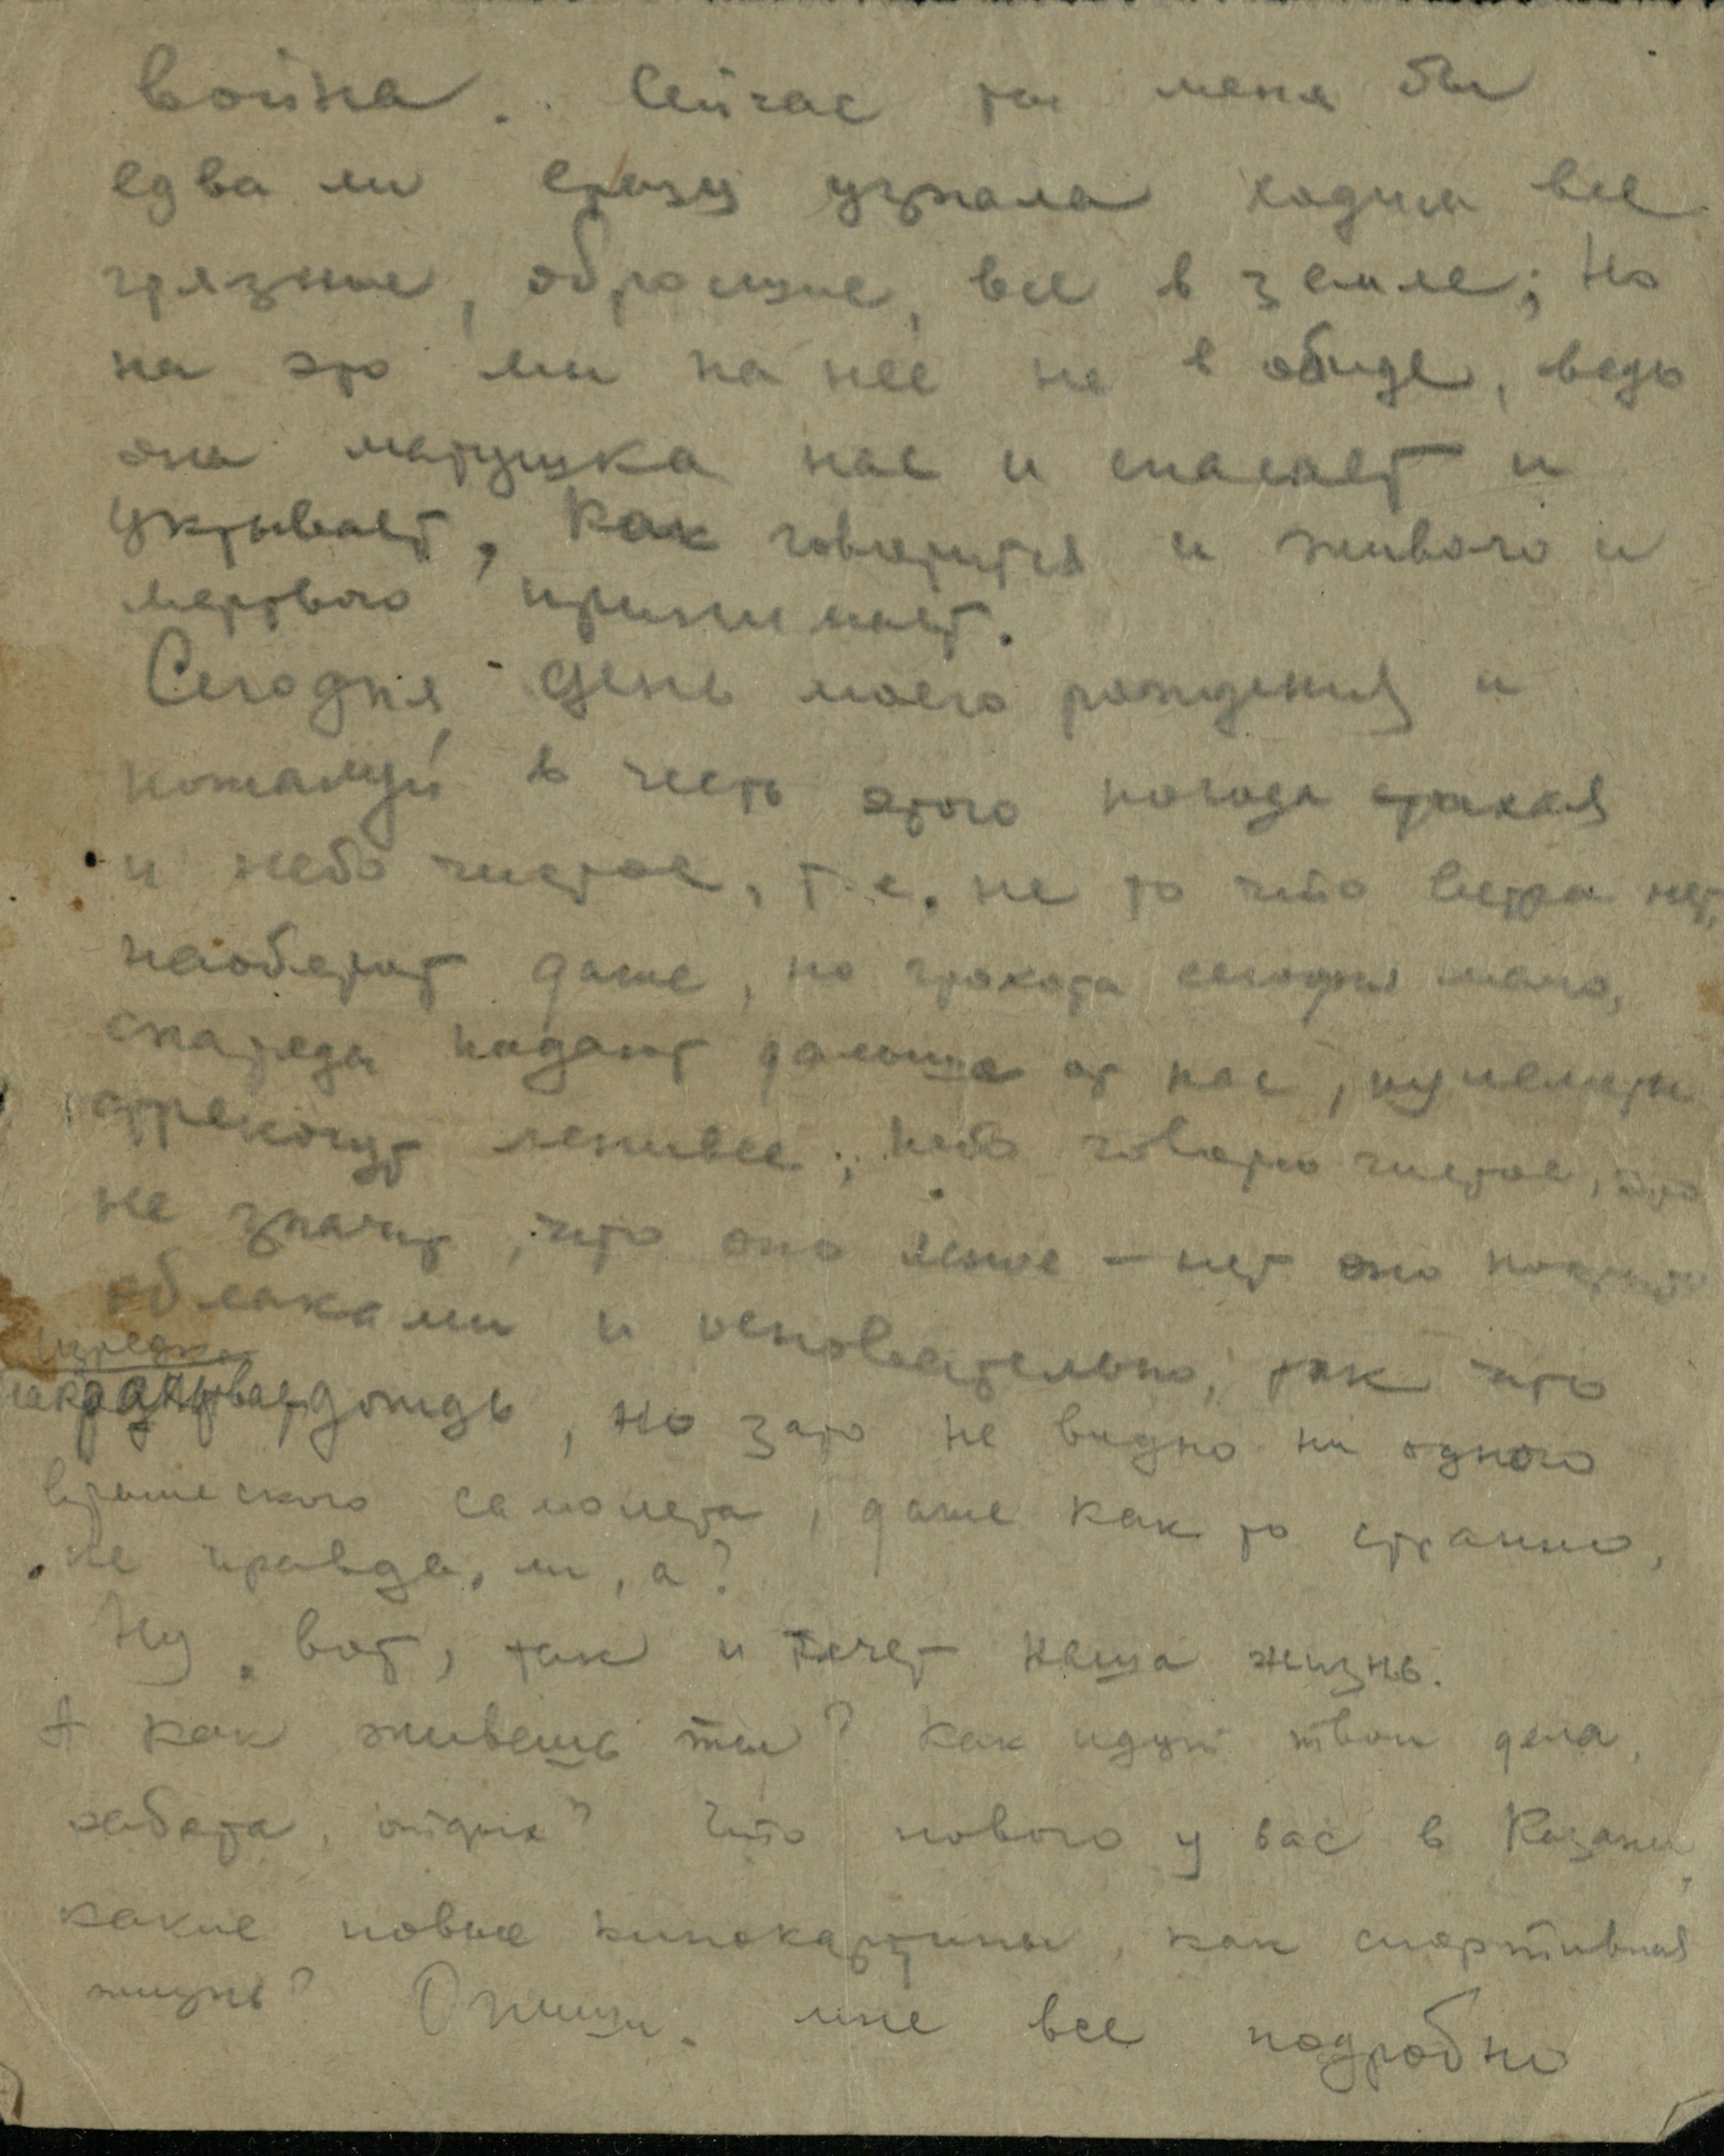 война. Сейчас ты меня бы
едва ли сразу узнала ходим все
грязные, обросшие, все в земле; Но
на это мы на нее не в обиде, ведь
она матушка нас и спасает и
укрывает, как говорится и живого и
мертвого принимает.
Сегодня день моего рождения и
пожалуй в честь этого погода
и небо чистое, т.е. не то что ветра нет,
наоборот даже, но грохота сегодня мало,
снаряды падают дальше от нас, пулеметы
стрекочут ленивее; небо говорю чистое, это
не значит, что оно ясное – нет оно покрыто
облаками и основательно, так что
изредка
накрапывает дождь, но зато не видно ни одного
вражеского самолета, даже как то странно,
не правда, ли, а?
Ну вот, так и течет наша жизнь.
А как живешь ты? Как идут твои дела,
работа, отдых? Что нового у вас в Казани,
какие новые кинокартины, как спортивная
жизнь? Опиши мне все подробно